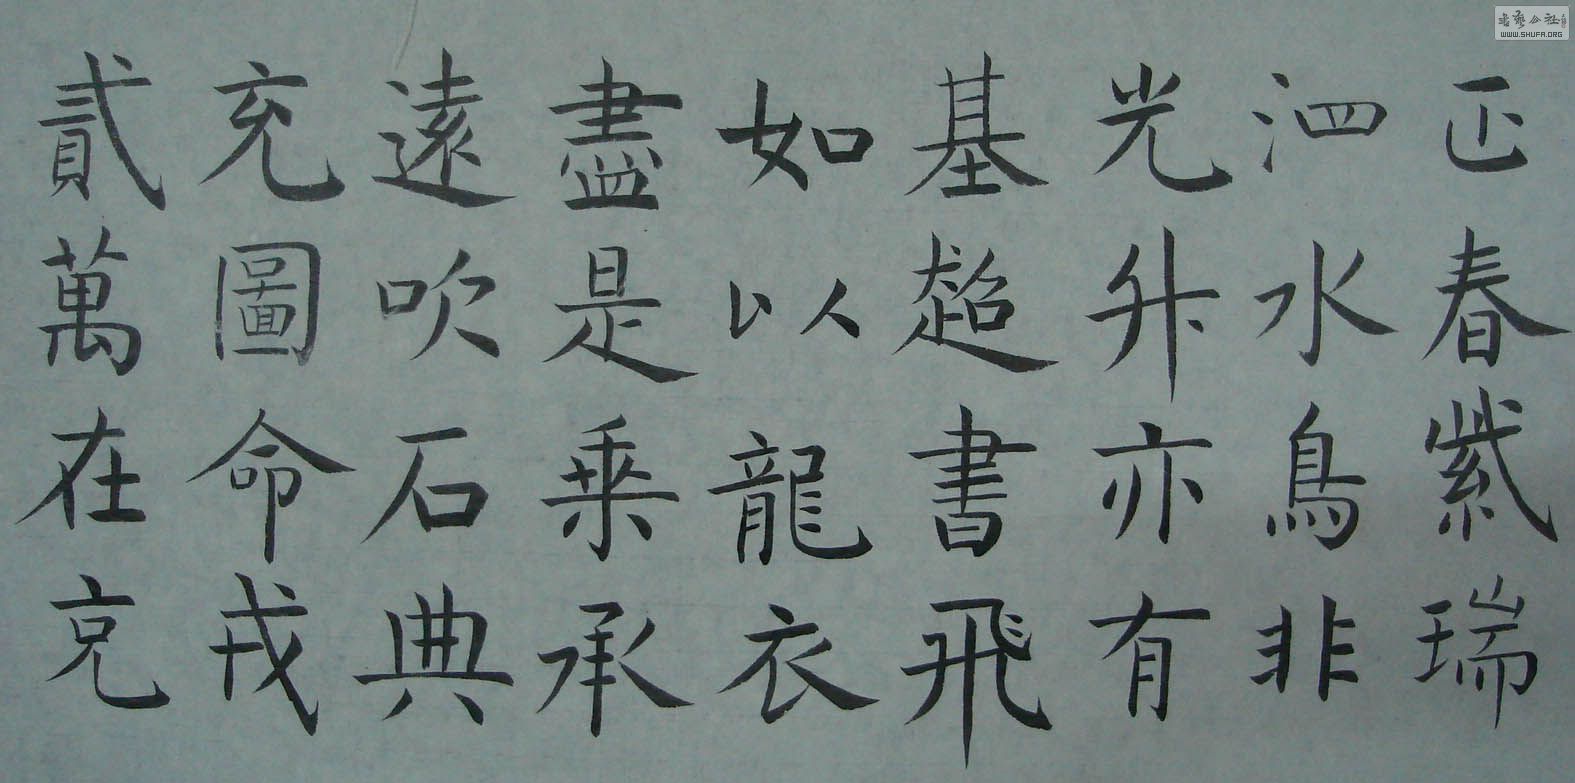 正春紫瑞
泗水鳥非
光升亦有
基超書飛
如以龍衣
盡是乘承
遠吹石典
充圖命戎
貳萬在克
书艺公社
WWW.SHUFA.ORG